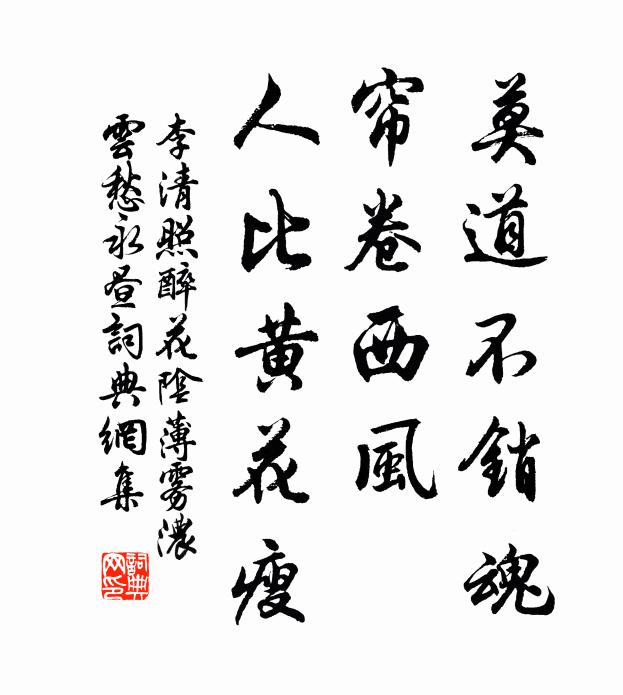 莫道不銷魂
帘卷西風
人比黄花瘦
李清照醉花陰薄雾濃
雲愁永昼詞典網集
詞典
网印